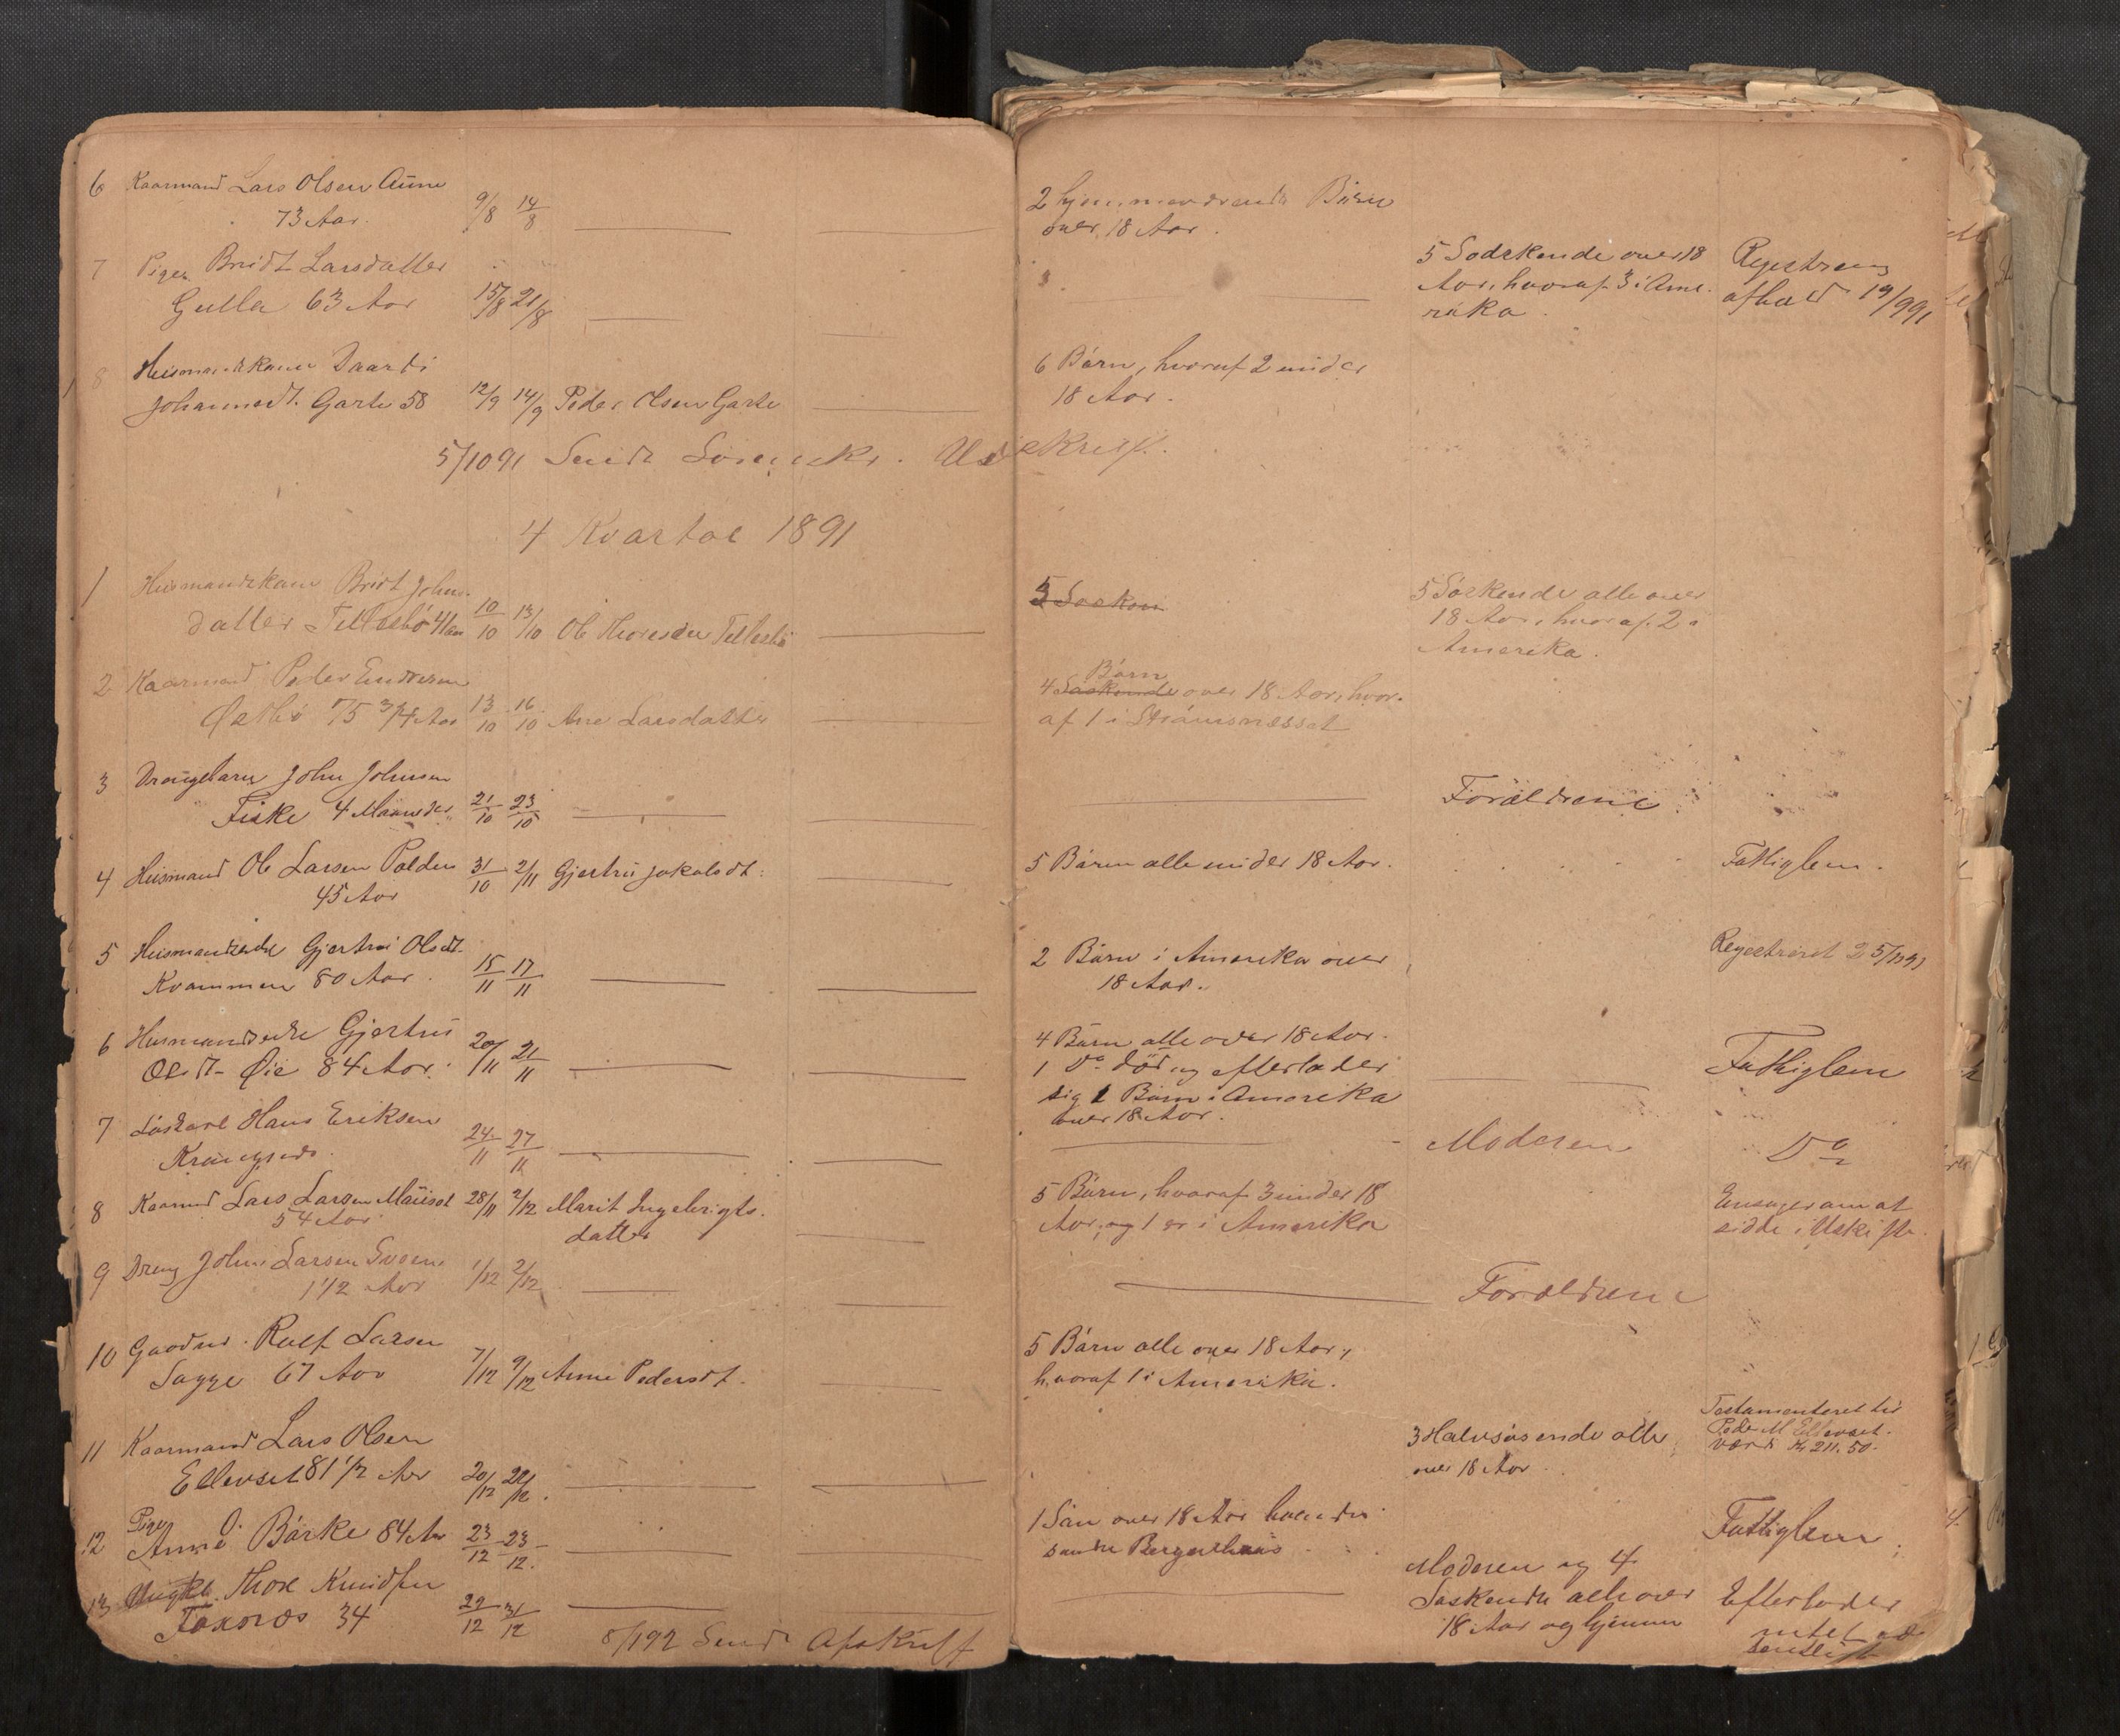 6 Kaarmand Lars Olsen Aune
73 Aar. 9/8 14/8
2 hjemmeværende Börn
over 18 Aar.
7 Pige Bridt Larsdatter
Gulla 63 Aar 15/8 21/8
5 Sodskende over 18
Aar, hvoraf 3 i Ame-
rika.
Registrering
afhold 19/9 91
8 Husmandskone Daardi
Johannesdt. Garte 58 12/9 14/9 Peder Olsen Garte
6 Börn, hvoraf 2 under
18 Aar.
5/10 91 Sendt Udskrift.
4 Kvartal 1891
1 Husmandskone Bridt Johns-
datter Tellesbö 41 Aar 10/10 13/10 Ole Thoresen Tellesbö
5 Söskende alle over
18 Aar, hvoraf 2 i
Amerika.
2 Kaarmand Peder Endresen
Østbö 75 3/4 Aar 13/10 16/10 Ane Larsdatter
Börn
4 Söskende over 18 Aar, hvor-
af 1 i Strömsnæsset
3 Drengebarn John Johnsen
Fiske 4 Maaneder 21/10 23/10
Forældrene
4 Husmand Ole Larsen Polden 31/10 2/11 Gjertru Jakobsdt:
45 Aar
5 Börn alle under 18 Aar.
Fattiglem.
5 Husmandsenke Gjertru Olsdt.
Kvammen 80 Aar. 15/11 17/11
2 Börn i Amerika over
18 Aar.
Registreret 25/11 91
6 Husmandsenke Gjertru
Olsdt- Øie 84 Aar. 20/11 21/11
4 Börn alle over 18 Aar.
1 Do död og efterlader
sig 2 Börn i Amerika
over 18 Aar.
Fattiglem
7 Löskarl Hans Eriksen
24/11 27/11
Moderen
Do
8 Kaarmd Lars Larsen Mauset 28/11 2/12 Marit Ingebrigts-
54 Aar datter
5 Börn, hvoraf 3 under 18
Aar, og 1 er i Amerika
Ansøger om at
sidde i Uskifte.
9 Dreng John Larsen Svoen
1 1/2 Aar 1/12 2/12
Forældrene
10 Gaardmd. Rolf Larsen
Sagge 67 Aar 7/12 9/12 Anne Pedersdt.
5 Börn alle over 18 Aar,
hvoraf 1 i Amerika.
11 Kaarmand Lars Olsen
Ellevset 81 1/2 Aar 20/12 22/12
3 Halvsösende alle
over 18 Aar
Testamenteret til
Peder M Ellevset.
værdi Kr 211.50.
12 Pige
Anne O. Börke 84 Aar 23/12 23/12
1 Sön over 18 Aar
söndre Bergenhuus
Fattiglem
13 Thore Knudsen
34 29/12 31/12
Moderen og 4
Söskende alle over
18 Aar og hjemme
Efterlader
intet
8/1 92 Sendt Afskrift